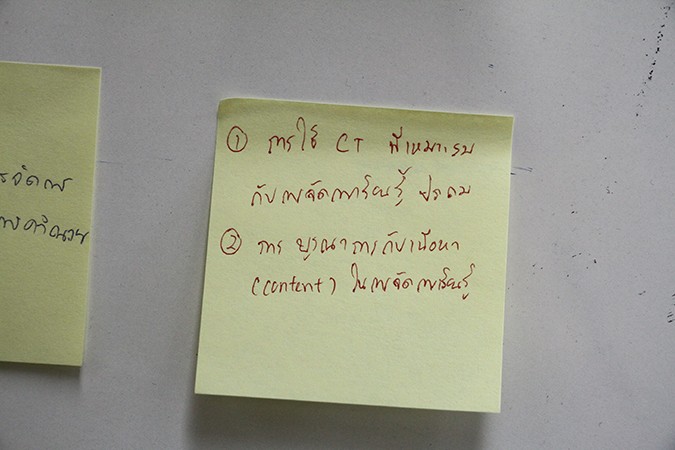 ① การใช้ CT ที่เหมาะสม
กับการจัดการเรียนรู้ ประถม
② การ บูรณาการกับเนื้อหา
(content) ในการจัดการเรียนรู้